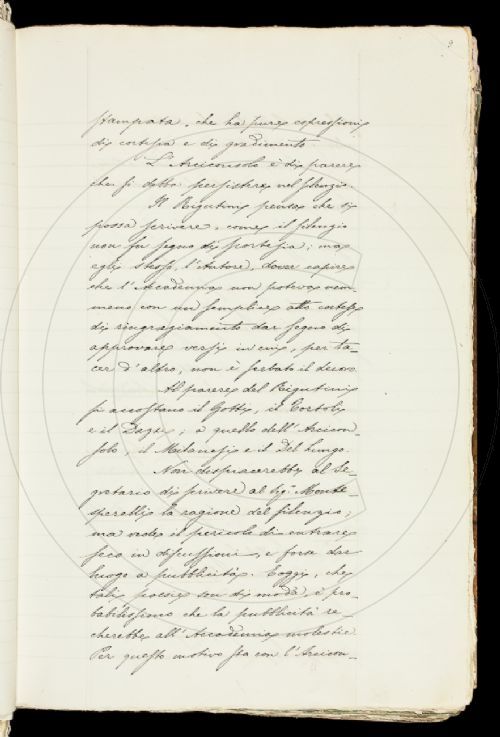 9
stampata, che ha pure espressioni
di cortesia e di gradimento.
L'Arciconsolo è di parere
che si debba persistere nel silenzio.
Il Rigutini pensa che si
possa scrivere, come il silenzio
non fu segno di scortesia; ma
egli stesso, l'Autore, dover capire
che l'Accademia non poteva nem-
meno con un semplice atto cortese
di ringraziamento dar segno di
approvare versi in cui, per ta-
cer d'altro, non è serbato il decoro.
Al parere del Rigutini
si accostano il Gotti, il Tortoli
e il Dazzi; a quello dell'Arcicon-
solo, il Milanesi e il Del Lungo.
Non dispiacerebbe al Se-
gretario di scrivere al Sig.r
la ragione del silenzio;
ma vede il pericolo di entrare
seco in discussioni, e forse dar
luogo a pubblicità. E oggi, che
tali poesie son di moda, è pro-
babilissimo che la pubblicità re-
cherebbe all'Accademia molestie.
Per questo motivo sta con l'Arcicon-